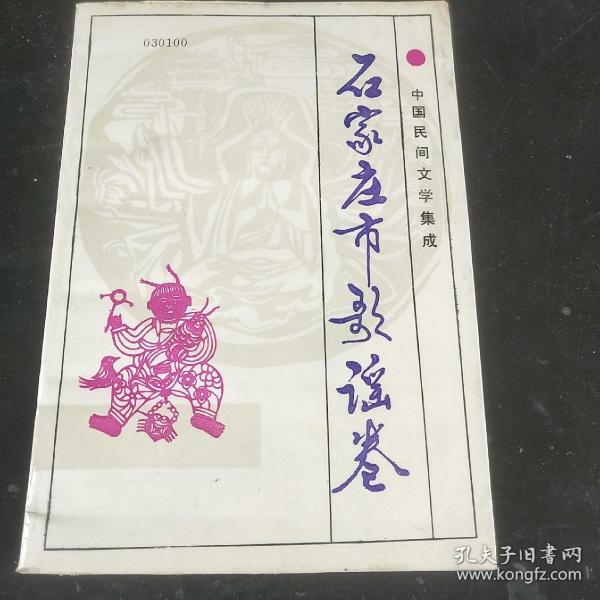 030100
中国民间文学集成
石家庄市歌谣卷
孔夫子旧书网
www.kongfz.com